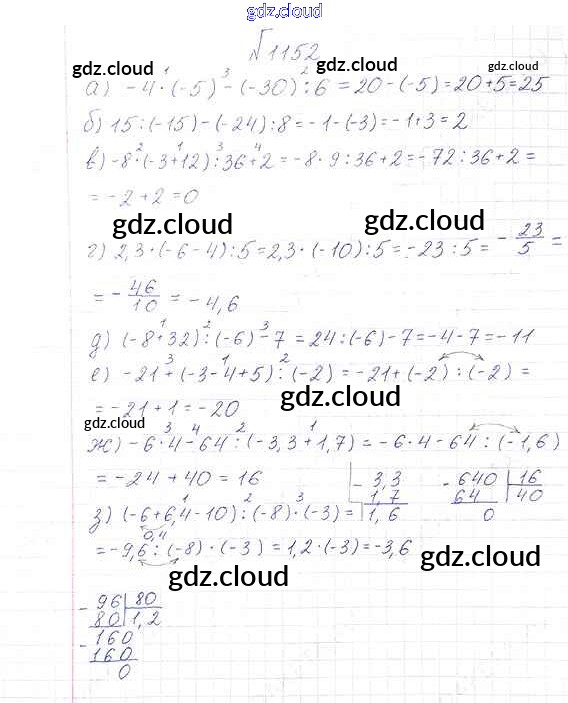 gdz.cloud
№1152
gdz.cloud gdz.cloud
1 3 2
а) -4·(-5)-(-30):6=20-(-5)=20+5=25
б) 15:(-15)-(-24):8=-1-(-3)=-1+3=2
2 1 3 4
в) -8·(-3+12):36+2=-8·9:36+2=-72:36+2=
=-2+2=0
gdz.cloud gdz.cloud
г) 2,3·(-6-4):5=2,3·(-10):5=-23:5=-23/5=
=-46/10=-4,6
1 2 3
д) (-8+32):(-6)-7=24:(-6)-7=-4-7=-11
3 1 2
е) -21+(-3-4+5):(-2)=-21+(-2):(-2)=
=-21+1=-20
gdz.cloud gdz.cloud
3 4 2 1
ж) -6·4-64:(-3,3+1,7)=-6·4-64:(-1,6)
=-24+40=16
- 3,3
1,7
1,6
- 640 16
64 40
0
gdz.cloud gdz.cloud
1 2 3
з) (-6+6,4-10):(-8)·(-3)=
0,4
=-9,6:(-8)·(-3)=1,2·(-3)=-3,6
gdz.cloud gdz.cloud
- 96 80
80 1,2
- 160
160
0
gdz.cloud gdz.cloud